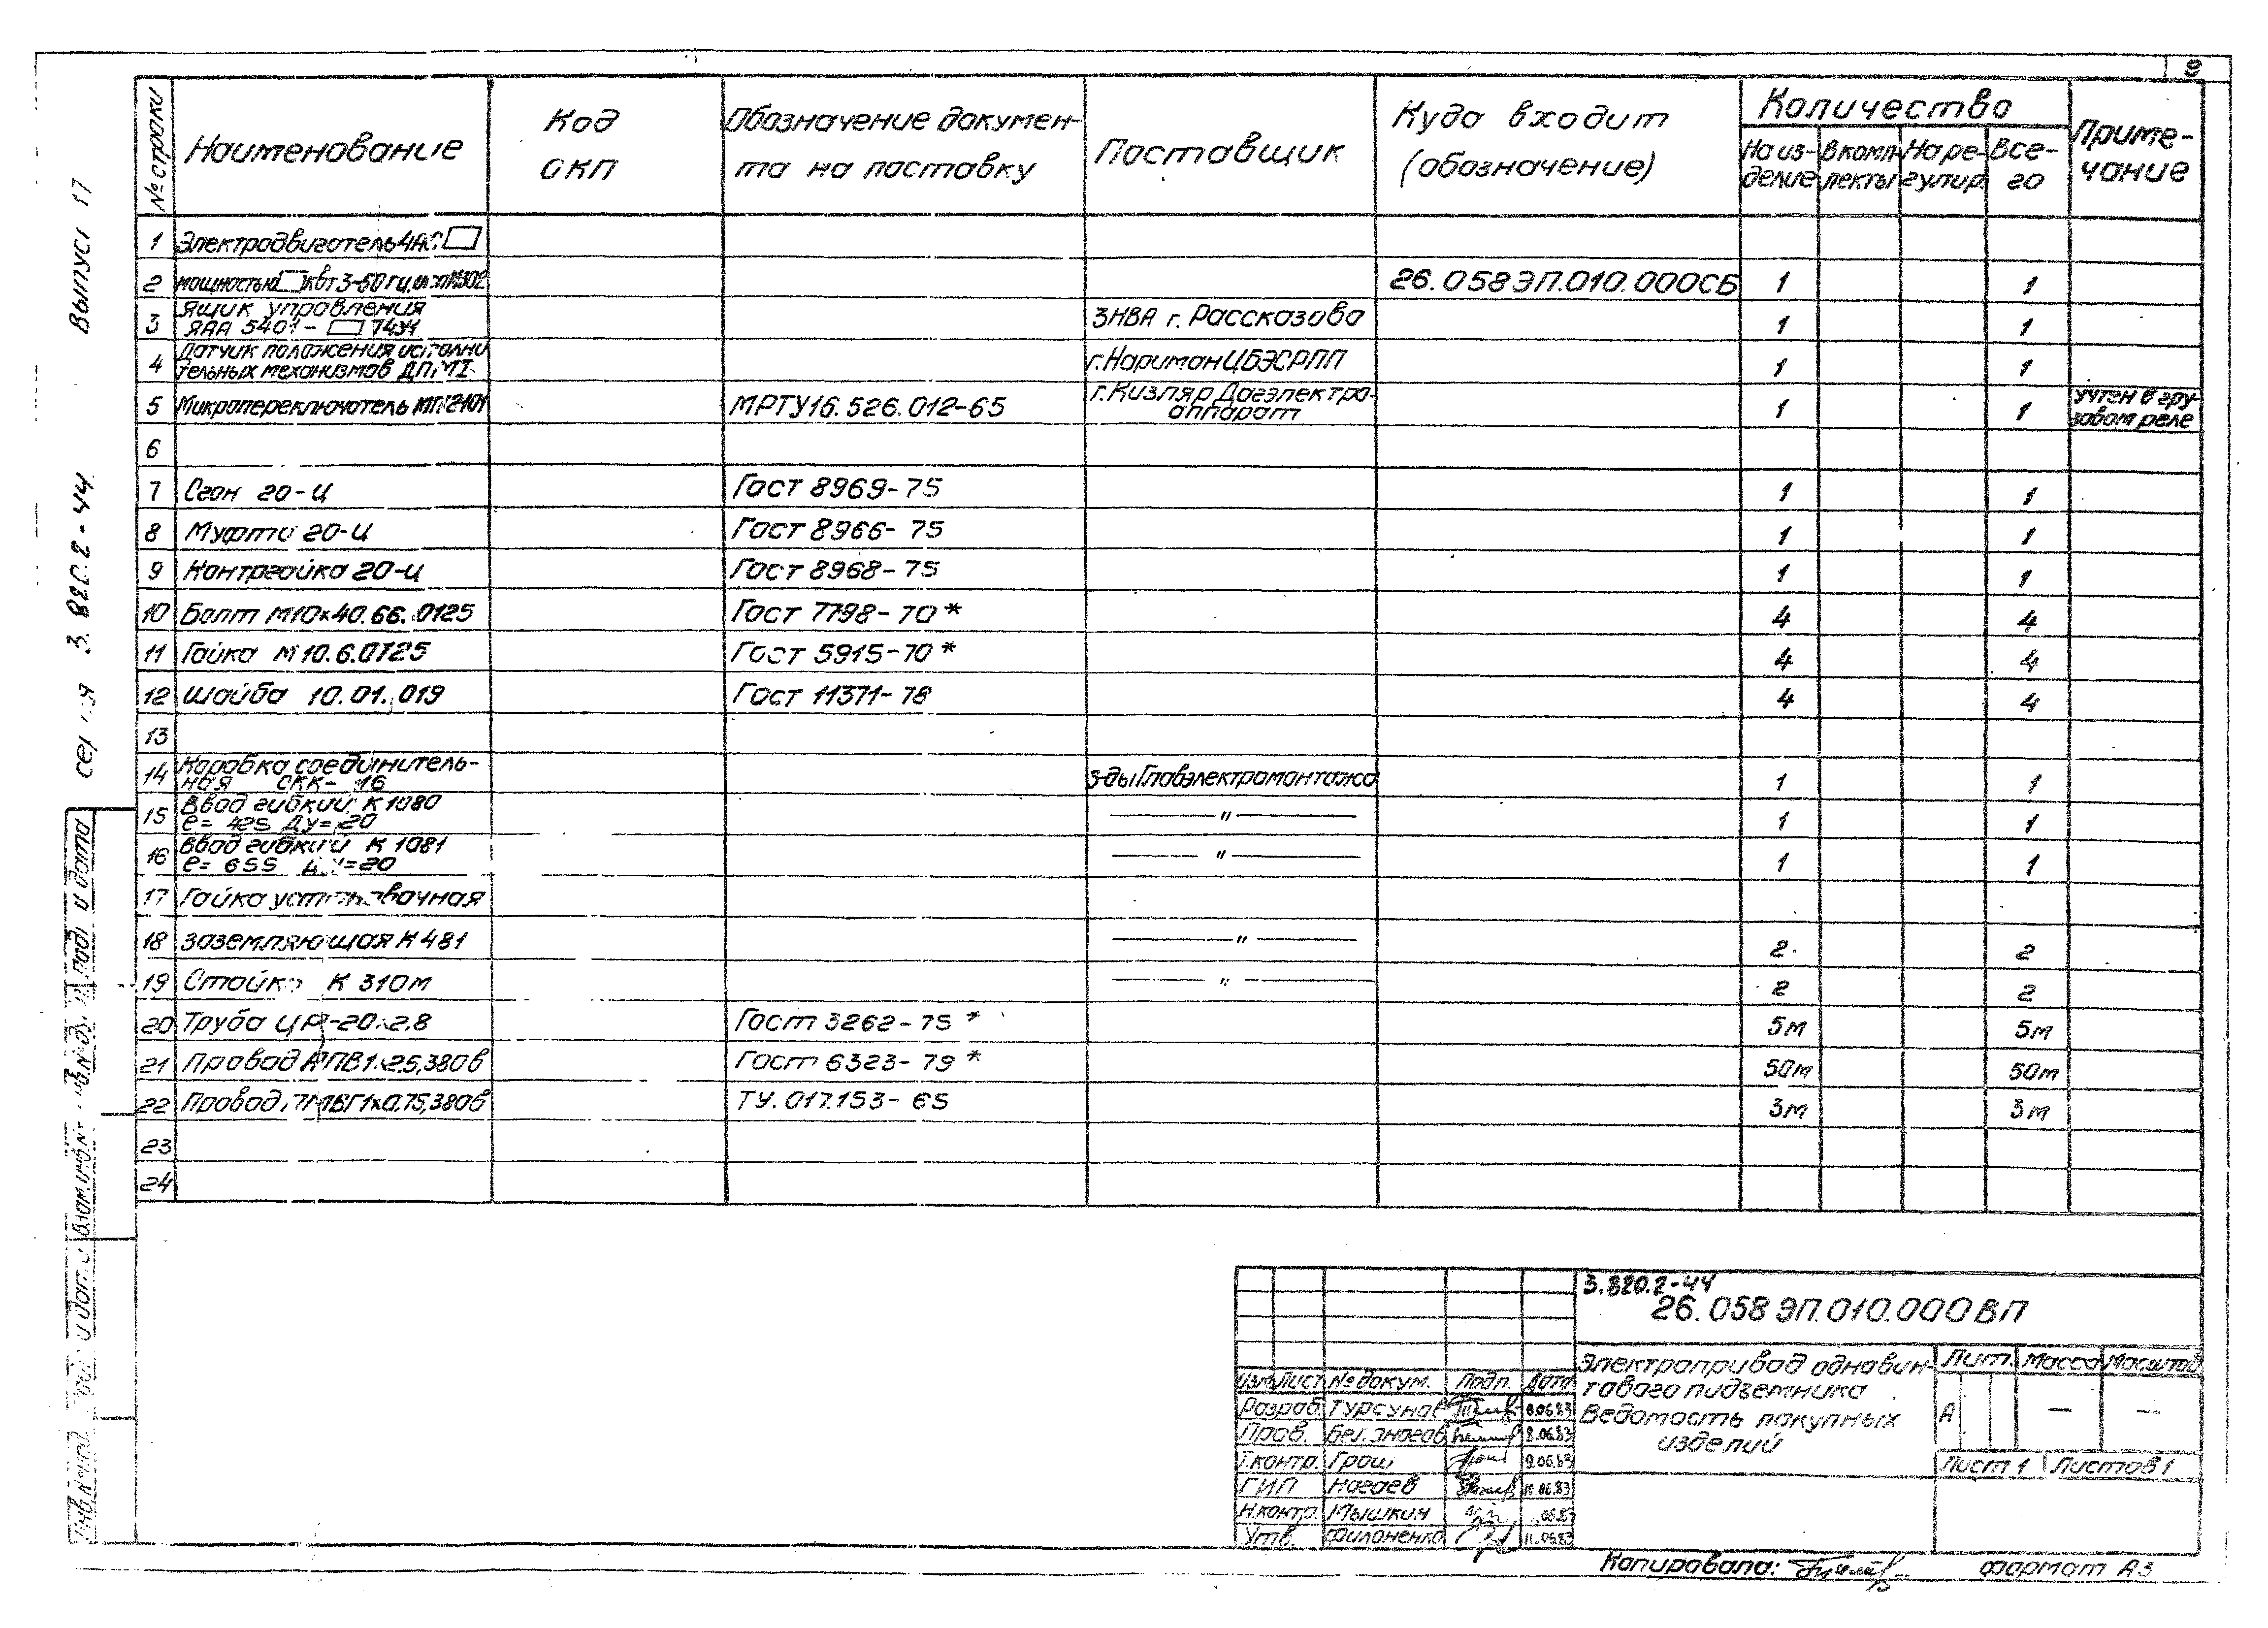 9
№ строки
Наименование
Код
ОКП
Обозначение докумен-
та на поставку
Поставщик
Куда входит
(обозначение)
Количество
На из-
делие
В комп-
лекты
На ре-
гулир.
Все-
го
Приме-
чание
1 Электродвигатель 4АС
2 мощностью квт 3-50 гц, исп. М302 26.058ЭП.010.000СБ 1 1
3 Ящик управления
ЯАА 5401- 74У1 ЗНВА г. Рассказова 1 1
4 Датчик положения исполни
тельных механизмов ДПМ1 г. Нариман ЦБЭСРПП 1 1
5 Микропереключатель МП2101 МРТУ16.526.012-65 г. Кизляр Дагэлектро-
аппарат 1 1 учтен в гру-
зовом реле
6
7 Сгон 20-Ц Гост 8969-75 1 1
8 Муфта 20-Ц Гост 8966-75 1 1
9 Контргайка 20-Ц Гост 8968-75 1 1
10 Болт М10х40.66.0125 Гост 7798-70* 4 4
11 Гайка М10.6.0125 Гост 5915-70* 4 4
12 Шайба 10.01.019 Гост 11371-78 4 4
13
14 Коробка соединитель-
ная СКК-16 З-ды Главэлектромонтажа 1 1
15 Ввод гибкий К1080
ℓ= 425 Ду=20 —"— 1 1
16 Ввод гибкий К1081
ℓ= 655 Ду=20 —"— 1 1
17 Гайка установочная
18 заземляющая К481 —"— 2 2
19 Стойка К 310м —"— 2 2
20 Труба ЦР-20х2,8 Гост 3262-75* 5м 5м
21 Провод АПВ1х2,5,380в Гост 6323-79* 50м 50м
22 Провод ПМВГ1х0,75,380в ТУ.017.153-65 3м 3м
23
24
серия 3.820.2-44 Выпуск 17
Инв.№ подл. Подп. и дата Взам.инв.№ Подп. и дата
3.820.2-44
26.058 ЭП.010.000ВП
Изм Лист № докум. Подп. Дата
Разраб. Турсунов 8.06.83
Пров. 8.06.83
Т.контр. Грош 9.06.83
ГИП Нагаев 10.06.83
Н.контр. Мышкин .06.83
Утв. Филоненко 11.06.83
Электропривод одновин-
тового подъемника
Ведомость покупных
изделий
Лит. Масса Масштаб
А — —
Лист 1 Листов 1
Копировала:
формат А3